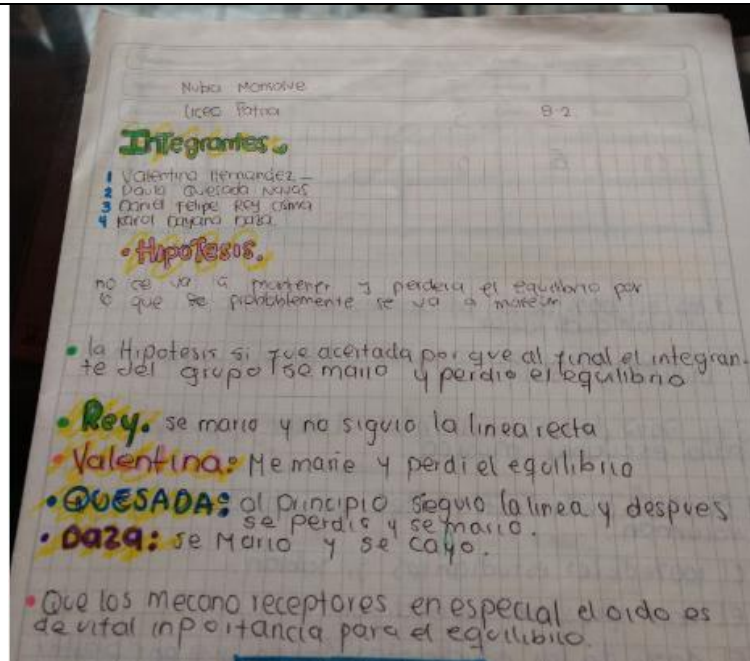 Nubia Monsalve
Liceo Patria 8-2
Integrantes.
1 Valentina Hernandez
2 Paula Quesada Navas
3 Daniel Felipe Rey
4 Karol Dayana Daza.
• Hipotesis.
no se va a mantener y perdera el equilibrio por
lo que se probablemente se va a marear.
• la Hipotesis si fue acertada por que al final el integran-
te del grupo se mario y perdio el equilibrio
• Rey. se mario y no siguio la linea recta
• Valentina: Me marie y perdi el equilibrio
• QUESADA: al principio seguio la linea y despues
se perdio y se mario.
• Daza: se Mario y se cayo.
• Que los mecono receptores en especial el oido es
de vital inportancia para el equilibrio.